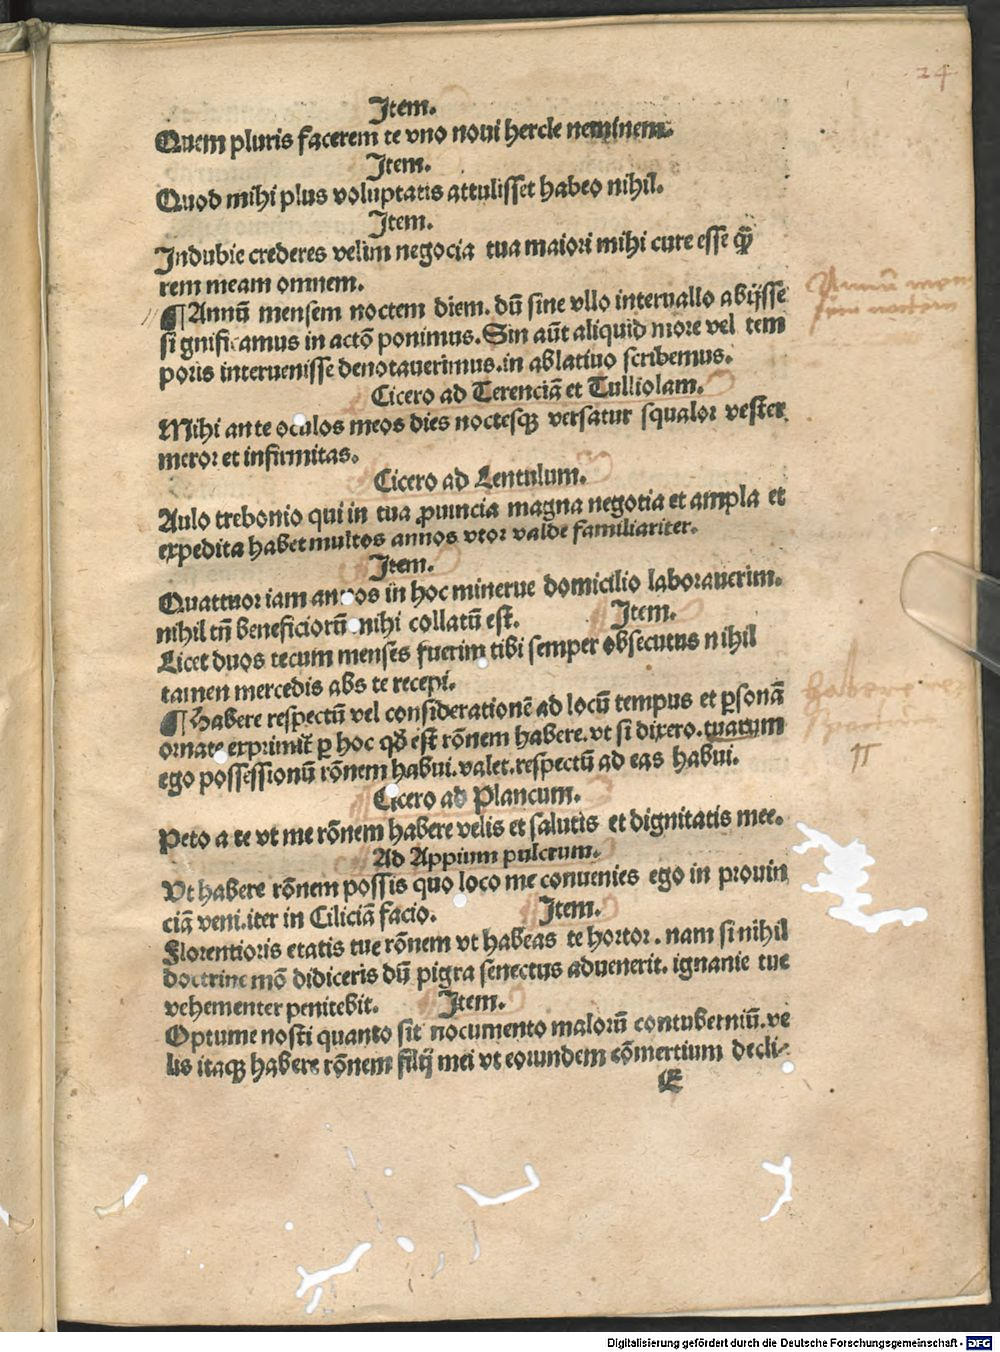 24
Item.
Quem pluris facerem te vno noui hercle neminem.
Item.
Quod mihi plus voluptatis attulisset habeo nihil.
Item.
Indubie crederes velim negocia tua maiori mihi cure esse qȝ̃
rem meam omnem.
¶ Annū mensem noctem diem. dū sine vllo interuallo abijsse
si gnificamus in actō ponimus. Sin aūt aliquid more vel tem
poris interuenisse denotauerimus. in ablatiuo scribemus.
Annū men
sem noctem
Cicero ad Terenciā et Tulliolam.
Mihi ante oculos meos dies noctesqȝ versatur squalor vester
meror et infirmitas.
Cicero ad Lentulum.
Aulo trebonio qui in tua ꝓuincia magna negotia et ampla et
expedita habet multos annos vtor valde familiariter.
Item.
Quattuor iam annos in hoc minerue domicilio laborauerim.
nihil tn̄ beneficiorū nihi collatū est. Item.
Licet duos tecum menses fuerim tibi semper obsecutus nihil
tamen mercedis abs te recepi.
¶ Habere respectū vel considerationē ad locū tempus et ꝑsonā
ornate exprimit̃ ꝑ hoc qđ est rōnem habere. vt si dixero. tuarum
ego possessionū rōnem habui. valet. respectū ad eas habui.
habere
Cicero ad Plancum.
Peto a te vt me rōnem habere velis et salutis et dignitatis mee.
Ad Appium pulcrum.
Vt habere rōnem possis quo loco me conuenies ego in prouin
ciā veni. iter in Ciliciā facio. Item.
Florentioris etatis tue rōnem vt habeas te hortor. nam si nihil
doctrine mō didiceris dū pigra senectus aduenerit. ignanie tue
vehementer penitebit. Item.
Optume nosti quanto sit nocumento malorū contuberniū. ve
lis itaqȝ habere rōnem filij mei vt eorundem cōmertium decli-
E
Digitalisierung gefördert durch die Deutsche Forschungsgemeinschaft - DFG